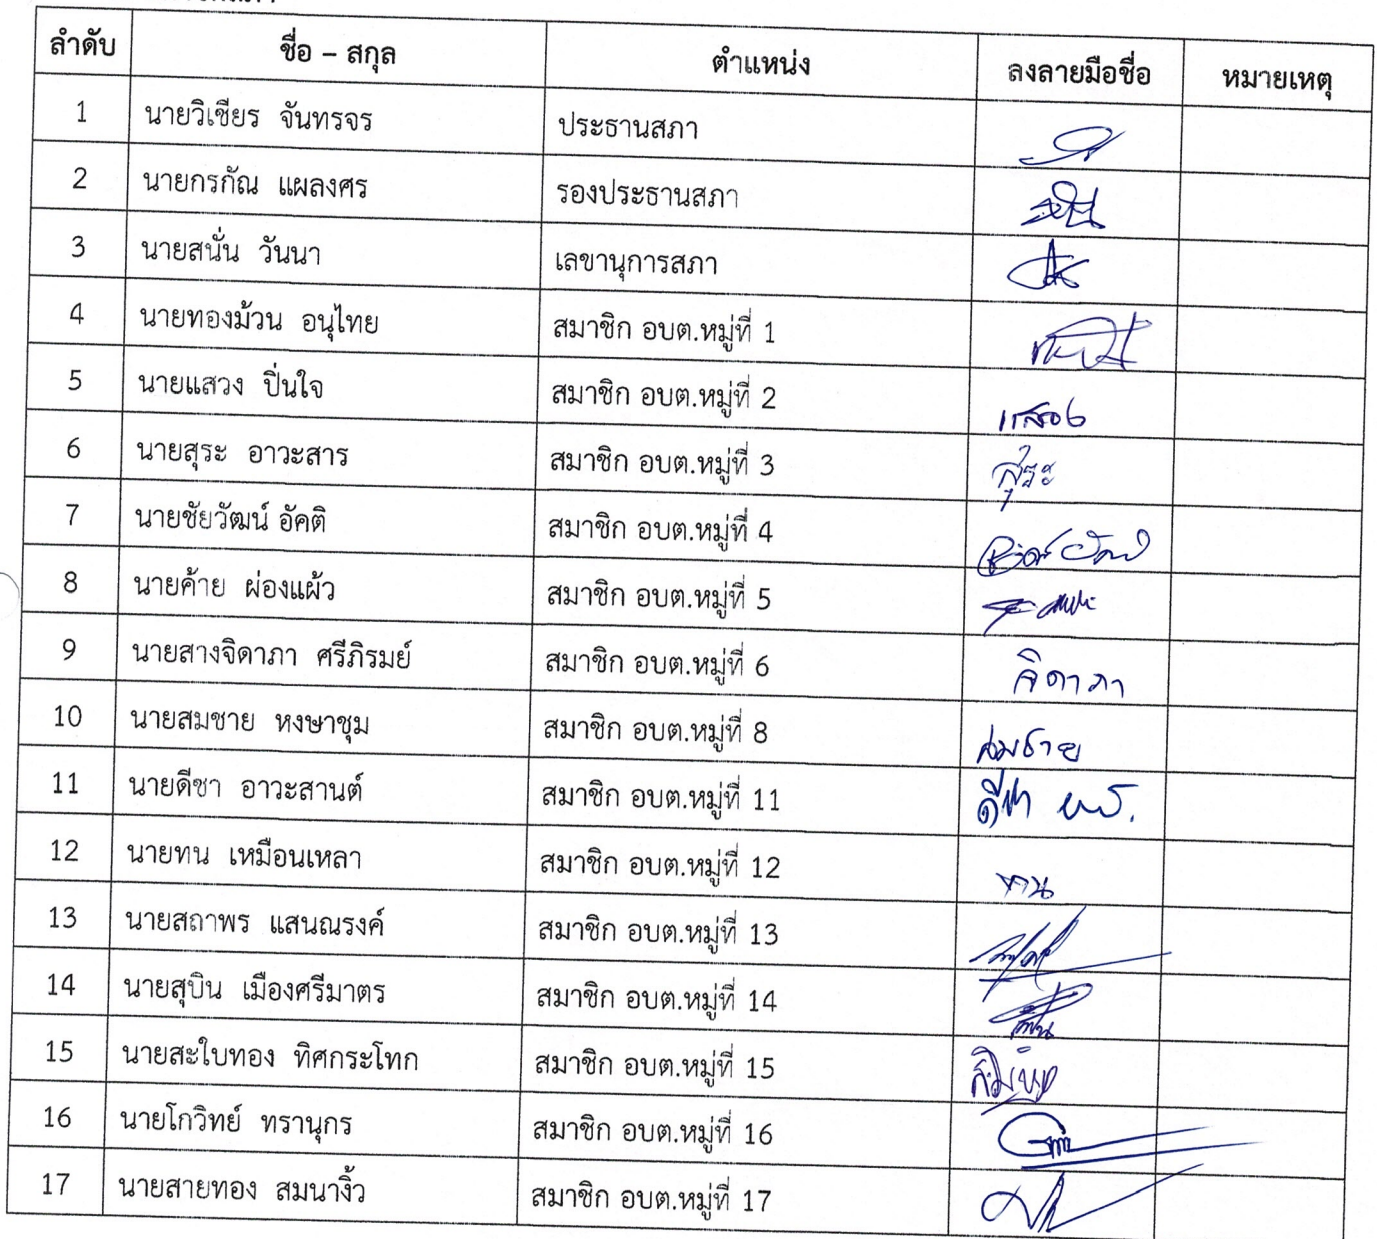 ลำดับ ชื่อ – สกุล ตำแหน่ง ลงลายมือชื่อ หมายเหตุ
1 นายวิเชียร จันทรจร ประธานสภา
2 นายกรกัณ แผลงศร รองประธานสภา
3 นายสนั่น วันนา เลขานุการสภา
4 นายทองม้วน อนุไทย สมาชิก อบต.หมู่ที่ 1
5 นายแสวง ปิ่นใจ สมาชิก อบต.หมู่ที่ 2 แสวง
6 นายสุระ อาวะสาร สมาชิก อบต.หมู่ที่ 3 สุระ
7 นายชัยวัฒน์ อัคติ สมาชิก อบต.หมู่ที่ 4
8 นายค้าย ผ่องแผ้ว สมาชิก อบต.หมู่ที่ 5
9 นายสางจิดาภา ศรีภิรมย์ สมาชิก อบต.หมู่ที่ 6 จิดาภา
10 นายสมชาย หงษาชุม สมาชิก อบต.หมู่ที่ 8 สมชาย
11 นายดีชา อาวะสานต์ สมาชิก อบต.หมู่ที่ 11 ดีชา
12 นายทน เหมือนเหลา สมาชิก อบต.หมู่ที่ 12
13 นายสถาพร แสนณรงค์ สมาชิก อบต.หมู่ที่ 13
14 นายสุบิน เมืองศรีมาตร สมาชิก อบต.หมู่ที่ 14
15 นายสะใบทอง ทิศกระโทก สมาชิก อบต.หมู่ที่ 15
16 นายโกวิทย์ ทรานุกร สมาชิก อบต.หมู่ที่ 16
17 นายสายทอง สมนางิ้ว สมาชิก อบต.หมู่ที่ 17